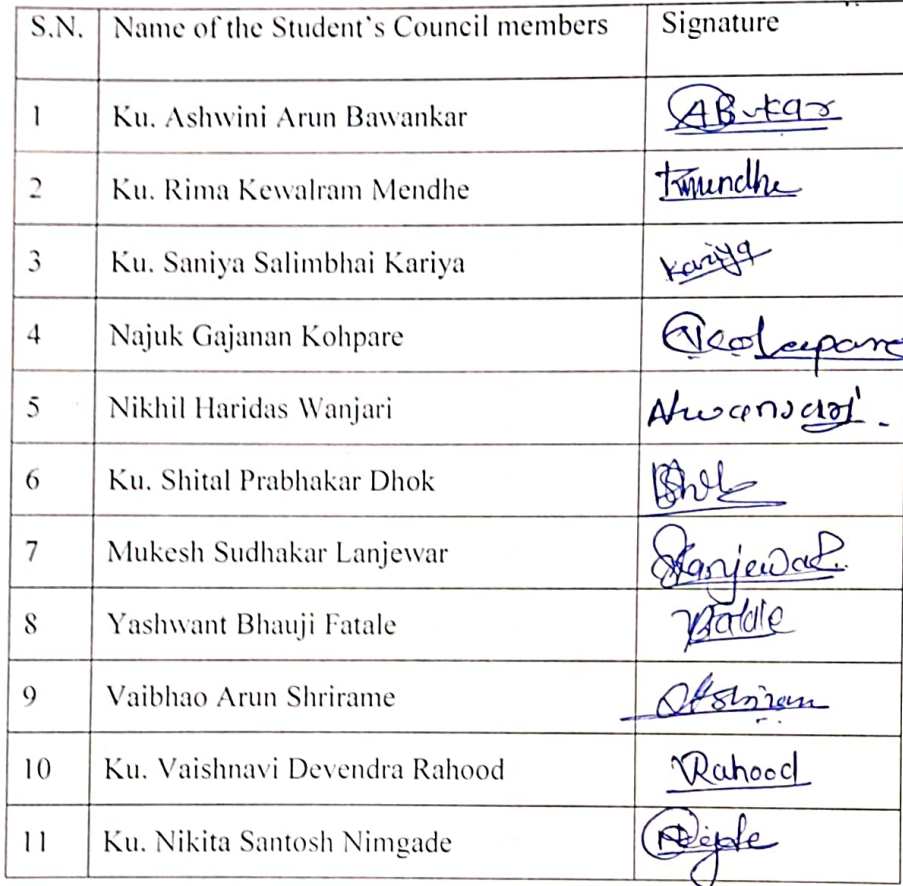 S.N. Name of the Student's Council members Signature
1 Ku. Ashwini Arun Bawankar
2 Ku. Rima Kewalram Mendhe
3 Ku. Saniya Salimbhai Kariya Kariya
4 Najuk Gajanan Kohpare
5 Nikhil Haridas Wanjari
6 Ku. Shital Prabhakar Dhok
7 Mukesh Sudhakar Lanjewar
8 Yashwant Bhauji Fatale
9 Vaibhao Arun Shrirame
10 Ku. Vaishnavi Devendra Rahood Rahood
11 Ku. Nikita Santosh Nimgade